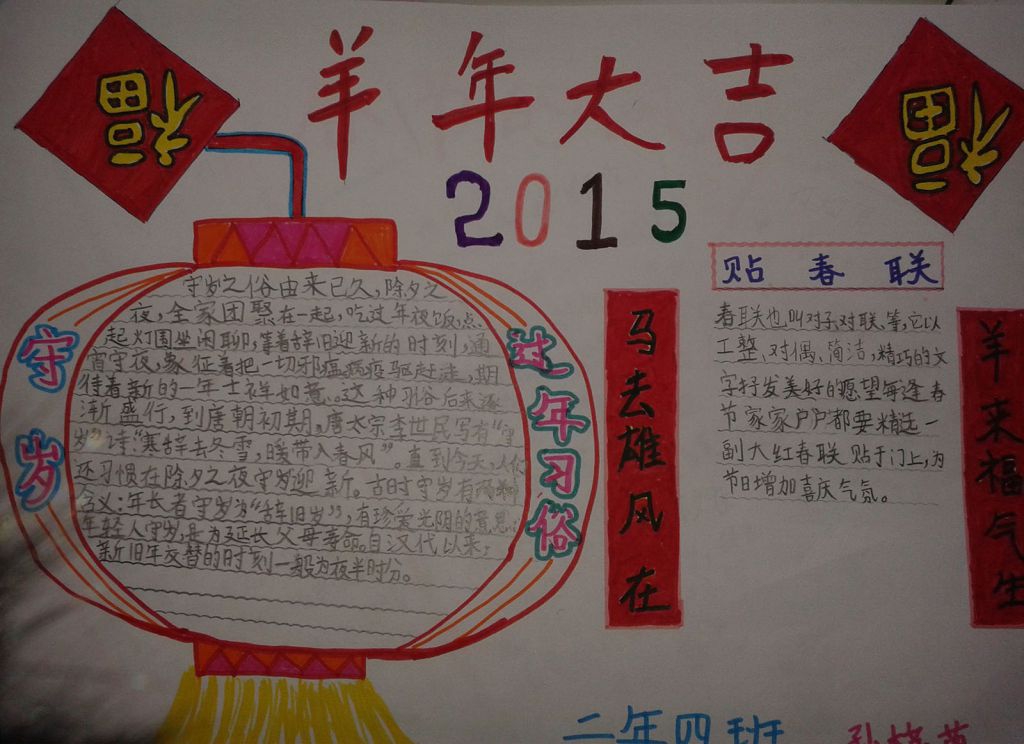 福
羊年大吉
福
2015
守岁
守岁之俗由来已久,除夕之
夜,全家团聚在一起,吃过年夜饭,点
起灯围坐闲聊,等着辞旧迎新的时刻,通
宵守夜,象征着把一切邪瘟病疫驱赶走,期
待着新的一年吉祥如意。这种习俗后来逐
渐盛行,到唐朝初期,唐太宗李世民写有“守
岁”诗:“寒辞去冬雪,暖带入春风”。直到今天,人们
还习惯在除夕之夜守岁迎新。古时守岁有两种
含义:年长者守岁为“辞旧岁”,有珍爱光阴的意思;
年轻人守岁,是为延长父母寿命。自汉代以来,
新旧年交替的时刻一般为夜半时分。
过年习俗
马去雄风在
贴春联
春联也叫对子、对联,等,它以
工整、对偶、简洁、精巧的文
字抒发美好的愿望每逢春
节家家户户都要精选一
副大红春联贴于门上,为
节日增加喜庆气氛。
羊来福气生
二年四班